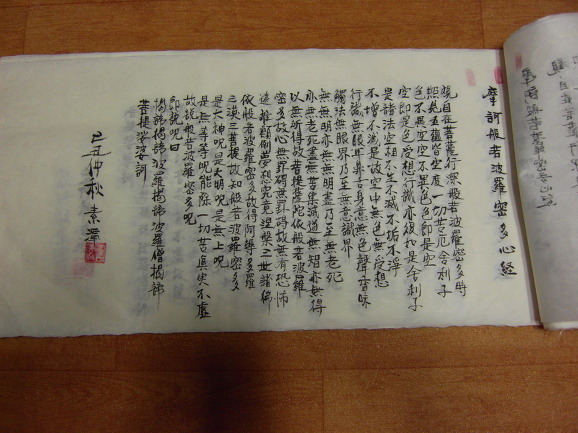 摩訶般若波羅密多心經
觀自在菩薩行深般若波羅密多時
照見五蘊皆空度一切苦厄舍利子
色不異空空不異色色即是空
空即是色受想行識亦復如是舍利子
是諸法空相不生不滅不垢不淨
不增不減是故空中無色無受想
行識無眼耳鼻舌身意無色聲香味
觸法無眼界乃至無意識界
無無明亦無無明盡乃至無老死
亦無老死盡無苦集滅道無智亦無得
以無所得故菩提薩陀依般若波羅
密多故心無罣碍無罣碍故無有恐怖
遠離顚倒夢想究竟涅槃三世諸佛
依般若波羅密多故得阿耨多羅
三藐三菩提故知般若波羅密多
是大神呪是大明呪是無上呪
是無等等呪能除一切苦眞実不虛
故說般若波羅密多呪
即說呪曰
揭諦揭諦波羅揭諦波羅僧揭諦
菩提娑婆訶
己丑仲秋 素